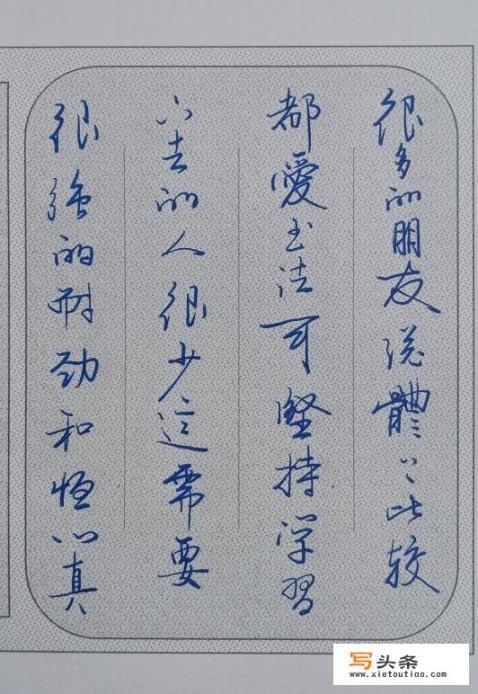 很多的朋友總體上比较
都愛书法可堅持学習
下去的人很少這需要
很強的耐劲和恒心真
写头条
www.xietoutiao.com